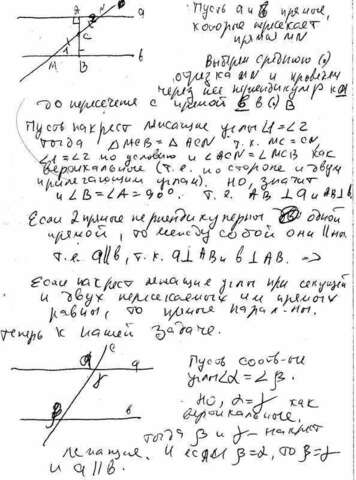 Пусть a и b прямые,
которые пересекает
прямая MN
Выберем середину (·)
отрезка MN и проведем
через нее перпендикуляр к a
до пересечения с прямой b в (·) B
Пусть накрест лежащие углы ∠1=∠2
тогда △MCB=△ACN т.к. MC=CN,
∠1=∠2 по условию и ∠ACN=∠MCB как
вертикальные (т.е. по стороне и двум
прилегающим углам). Но, значит
и ∠B=∠A=90°. т.е. AB⊥a и AB⊥b
Если 2 прямые перпендикулярны одной
прямой, то между собой они ‖ на
т.е. a‖b, т.к. a⊥AB и b⊥AB. ⇒
Если накрест лежащие углы при секущей
и двух пересекаемых им прямых
равны, то прямые парал-ны.
теперь к нашей задаче.
Пусть соотв-ые
углы ∠α=∠β.
Но, α=γ как
вертикальные,
тогда β и γ - накрест
лежащие. И если β=α, то β=γ
и a‖b.
A
N
2
a
C
1
M
B
b
c
α
a
γ
β
b